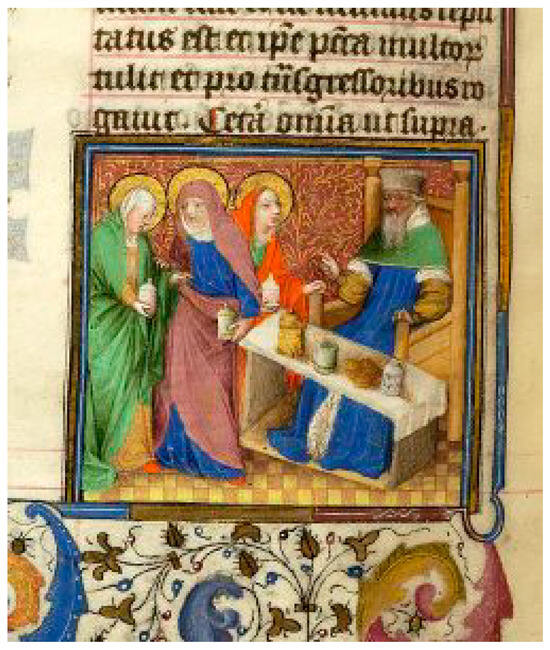 repu
tatus est et ip̄e pc̄ta multoꝝ
tulit et pro tn̄sgressoribus ro
gauit. Cet̄a om̄ia ut supra.